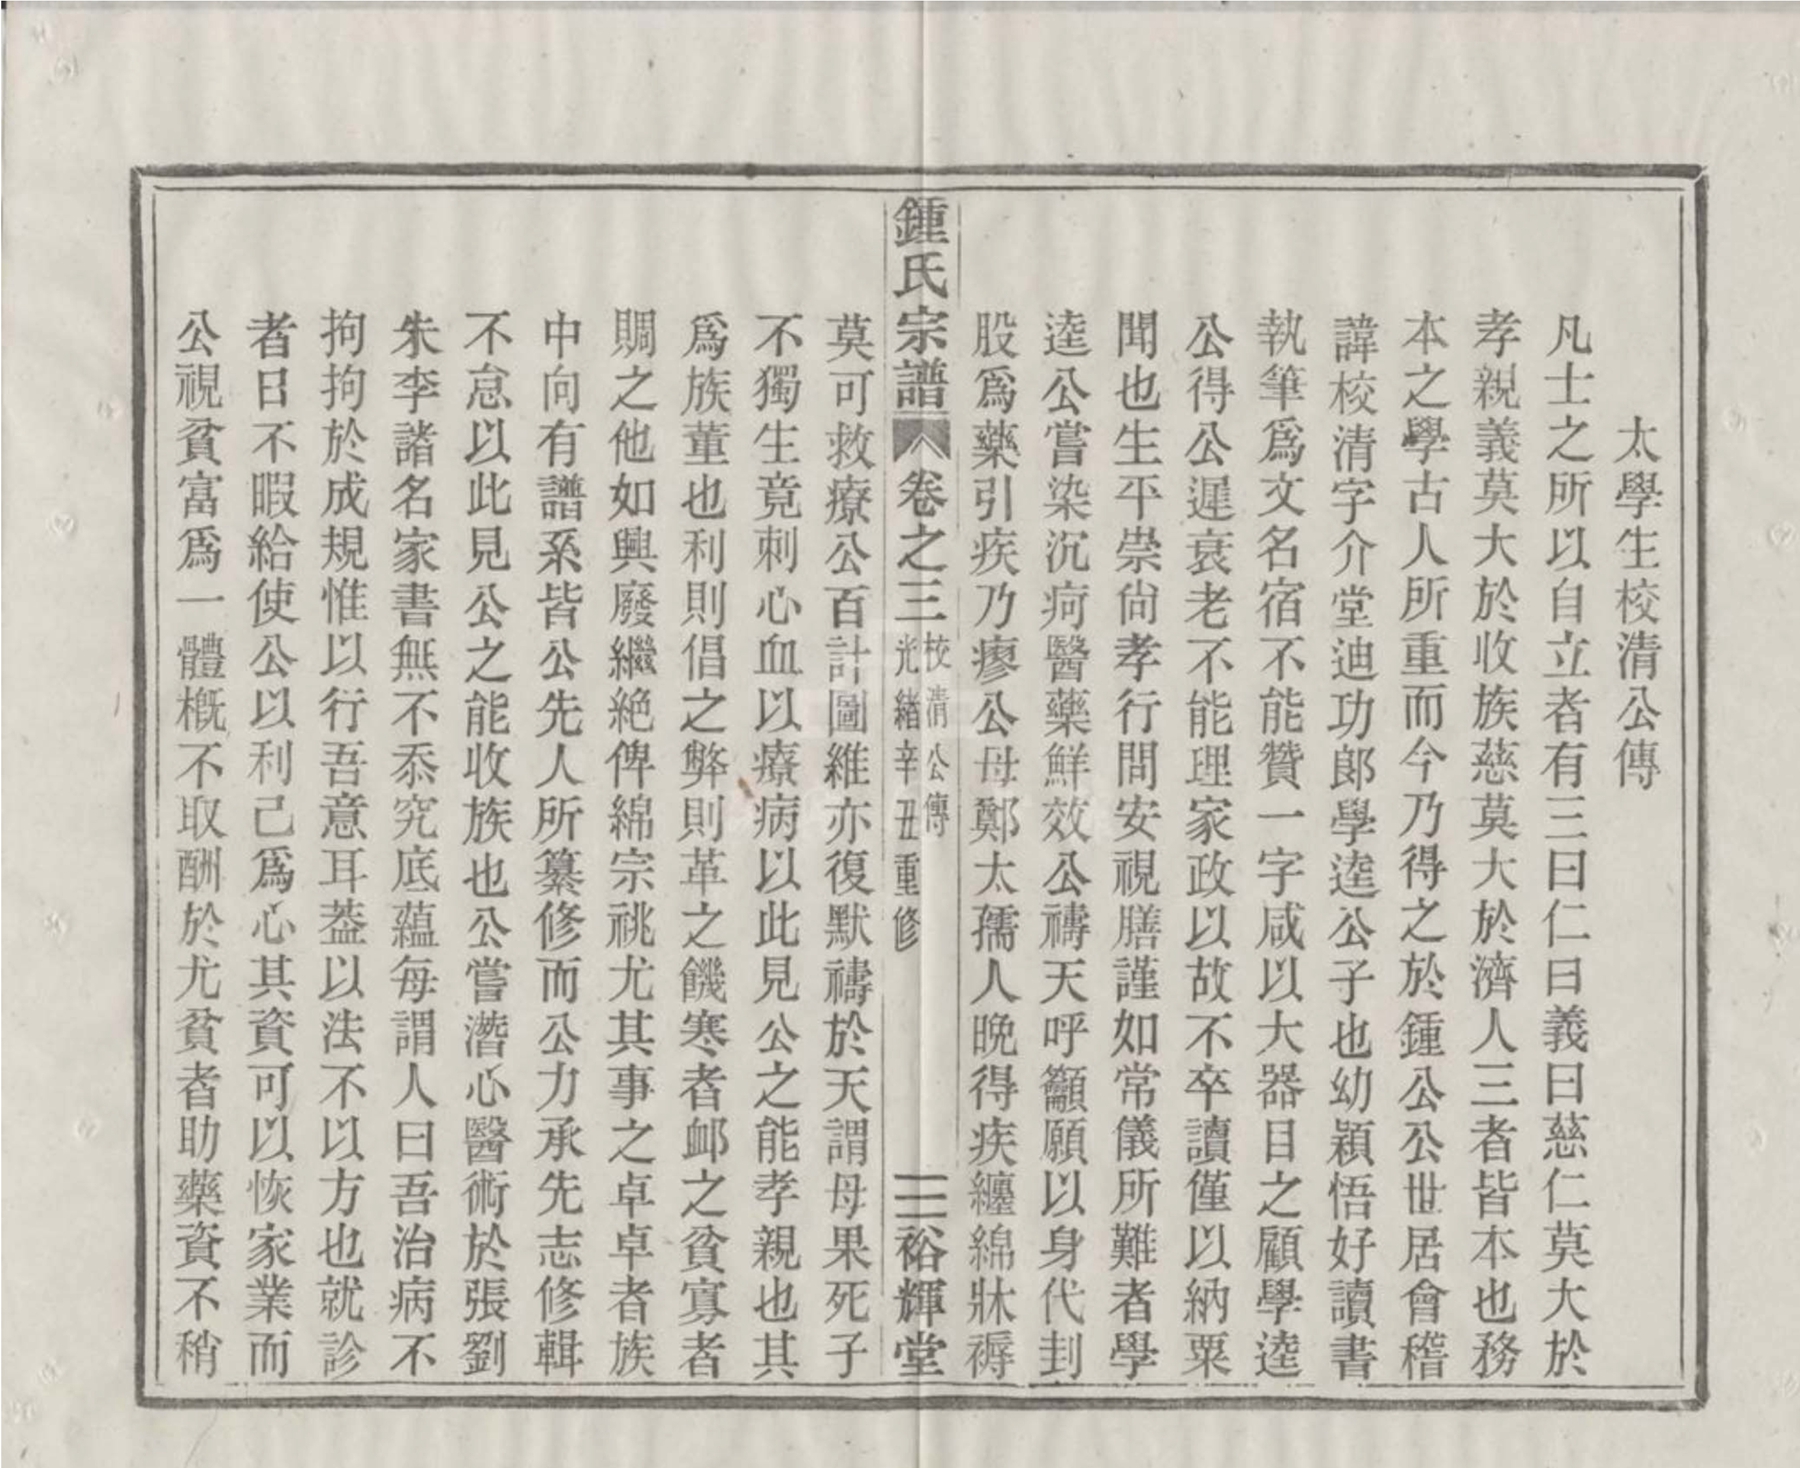 太學生校清公傳
凡士之所以自立者有三曰仁曰義曰慈仁莫大於
孝親義莫大於收族慈莫大於濟人三者皆本也務
本之學古人所重而今乃得之於鍾公公世居會稽
諱校清字介堂迪功郎學逵公子也幼穎悟好讀書
執筆爲文名宿不能贊一字咸以大器目之顧學逵
公得公遲衰老不能理家政以故不卒讀僅以納粟
聞也生平崇尙孝行問安視膳謹如常儀所難者學
逵公嘗染沉疴醫藥鮮效公禱天呼籲願以身代刲
股爲藥引疾乃瘳公母鄭太孺人晩得疾纏綿牀褥
鍾氏宗譜
卷之三
校清公傳
光緒辛丑重修
三
裕輝堂
莫可救療公百計圖維亦復默禱於天謂母果死子
不獨生竟刺心血以療病以此見公之能孝親也其
爲族董也利則倡之弊則革之饑寒者䘏之貧寡者
賙之他如興廢繼絕俾綿宗祧尤其事之卓卓者族
中向有譜系皆公先人所纂修而公力承先志修輯
不怠以此見公之能收族也公嘗潛心醫術於張劉
朱李諸名家書無不忝究底蘊每謂人曰吾治病不
拘拘於成規惟以行吾意耳葢以法不以方也就診
者日不暇給使公以利己爲心其資可以恢家業而
公視貧富爲一體槪不取酬於尤貧者助藥資不稍